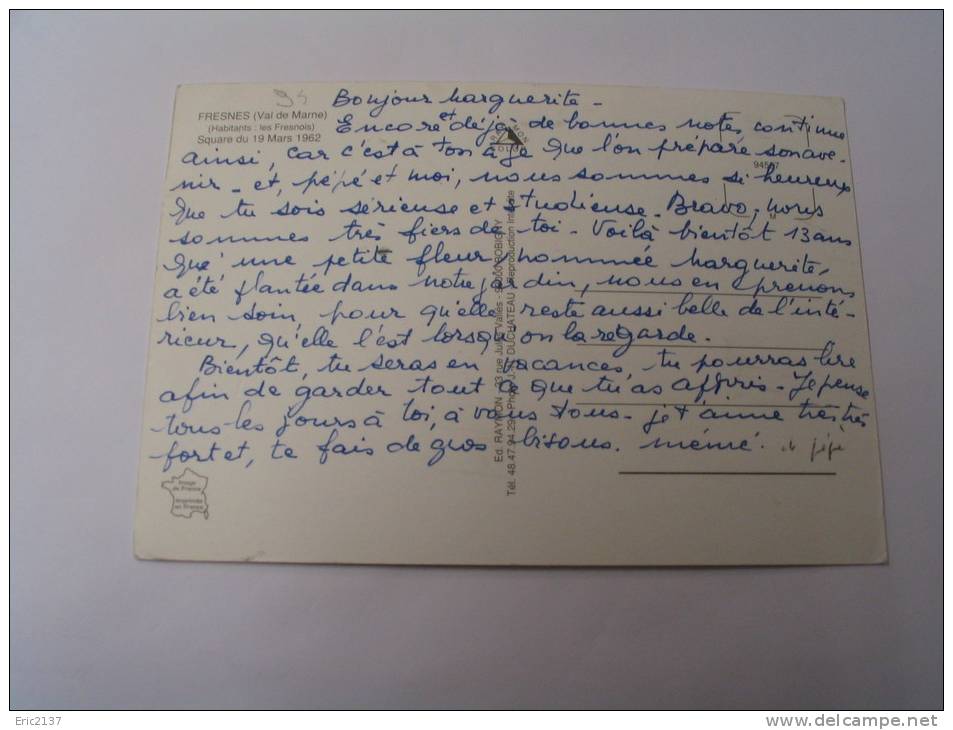 94
Bonjour Marguerite -
FRESNES (Val de Marne)
(Habitants : les Fresnois)
Square du 19 Mars 1962
Encore et déjà de bonnes notes, continue
ainsi, car c'est à ton âge que l'on prépare son ave-
nir - et, pépé et moi, nous sommes si heureux
que tu sois sérieuse et studieuse. Bravo, nous
sommes très fiers de toi - Voilà bientôt 13 ans
qu'une petite fleur, nommée Marguerite,
a été plantée dans notre jardin, nous en prenons
bien soin, pour qu'elle reste aussi belle de l'inté-
rieur, qu'elle l'est lorsqu'on la regarde.
Bientôt, tu seras en vacances, tu pourras lire
afin de garder tout ce que tu as appris - Je pense
tous les jours à toi, à vous tous - je t'aime très très
fort et, te fais de gros bisous. mémé. et pépé
Ed. RAYMON - 23 rue Jules Vallès - 93000 BOBIGNY
Tél. 48.47.94.29 - Photo J. DUCHATEAU - Reproduction Interdite
Image
de France
Imprimée
en France
Eric2137
www.delcampe.net